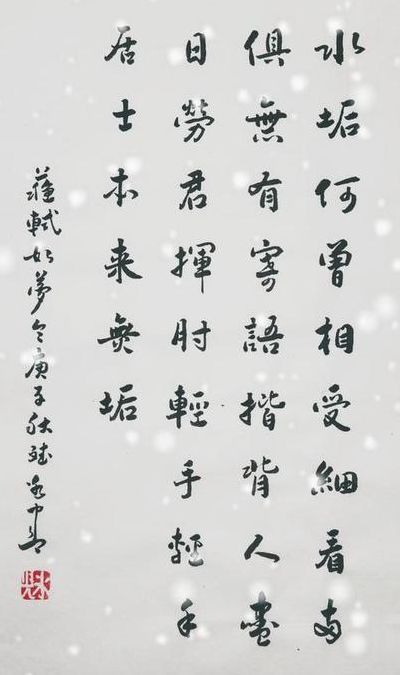 水垢何曾相受細看兩
俱無有寄語揩背人盡
日勞君揮肘輕手輕手
居士本来無垢
蘇軾如夢令庚子秋